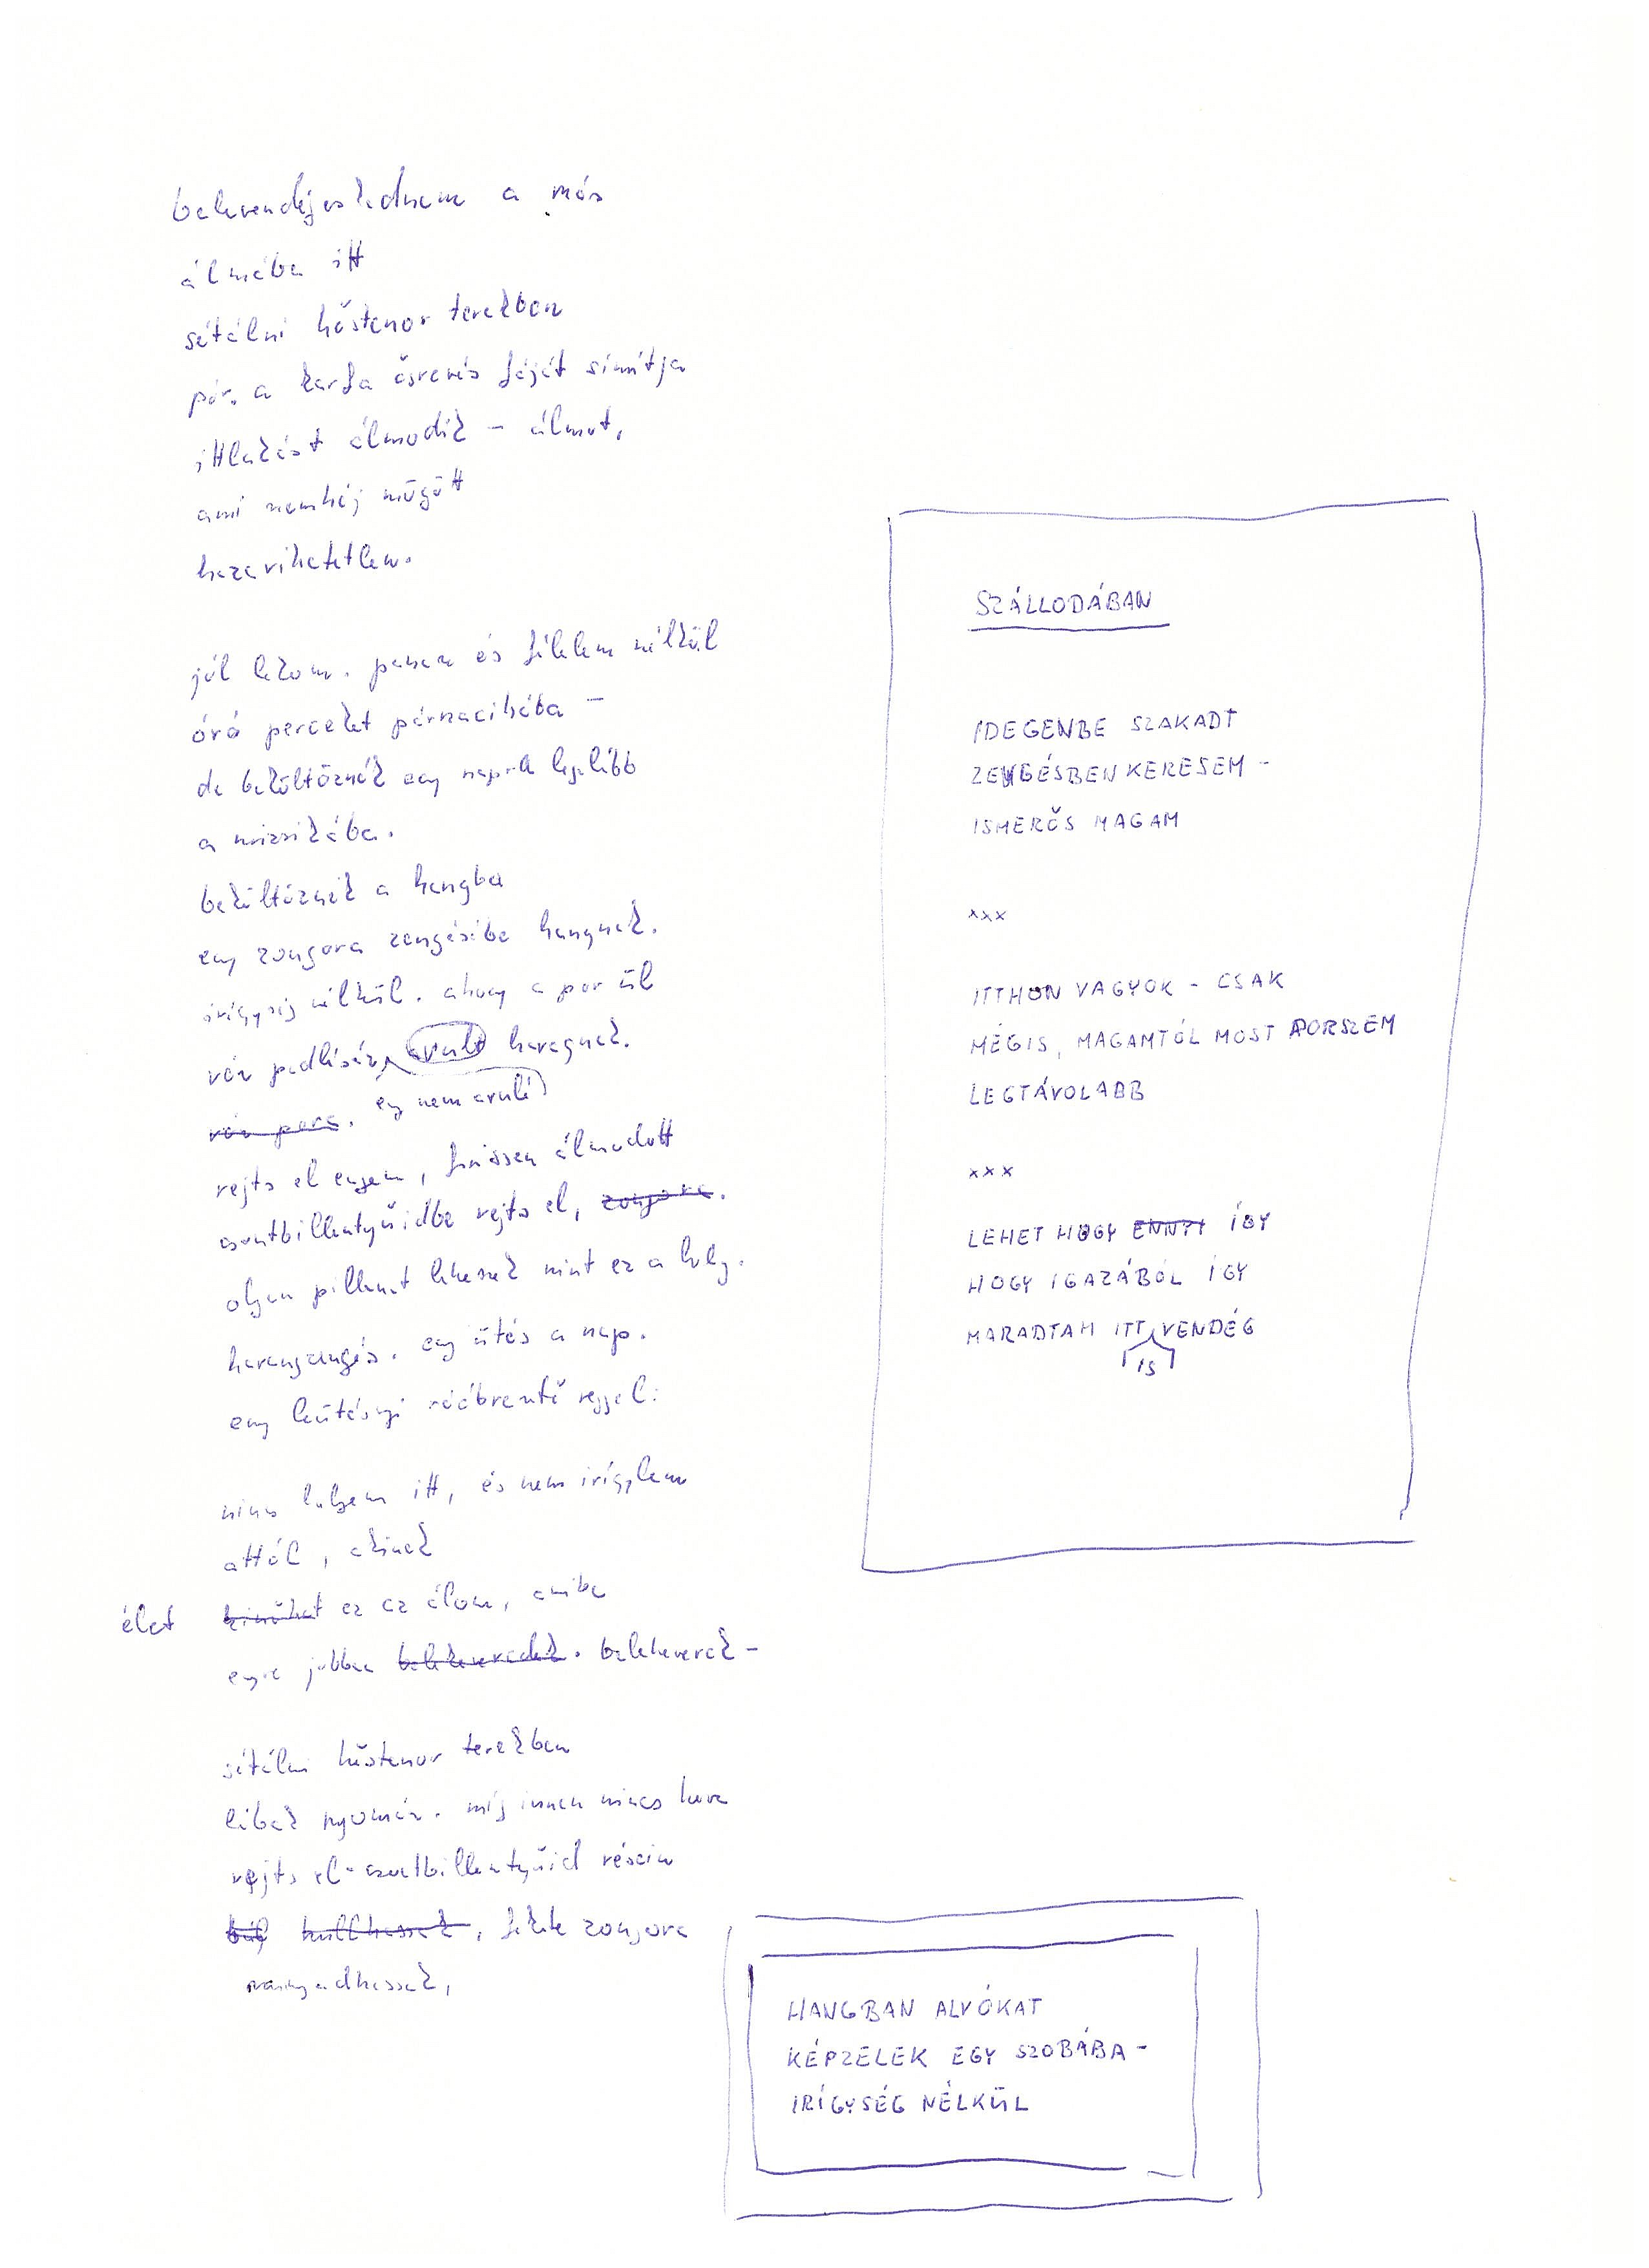 belevendégeskednem a más
álmába itt
sétálni hőstenor terekben
pór. a karfa ősrevés fáját simítja
ittlakást álmodik – álmot,
ami szemhéj mögött
hazavihetetlen.
jól lakom. panasz és félelem nélkül
óró perceket párnacihába –
de beköltöznék egy napra legalább
a muzsikába.
beköltöznék a hangba
egy zongora zengésébe hangnak.
irígység nélkül. ahogy a por ül
vén padlásán, avult haragnak.
vén pora. egy nem avuló
rejts el engem, frissen álmodott
csontbillentyűidbe rejts el, zongora.
olyan pillanat lehessek mint ez a hely.
harangzengés. egy ütés a nap.
egy leütésnyi ráébrentő reggel:
nincs helyem itt, és nem irígylem
attól, akinek
élet kinőhet ez az álom, amibe
egyre jobban belekeveredek. belekeverek –
sétálni hőstenor terekben
lábak nyomán. míg innen nincs hova
rejts el – csontbillentyűid résein
hullhassak, fekete zongora
SZÁLLODÁBAN
IDEGENBE SZAKADT
ZENGÉSBEN KERESEM –
ISMERŐS MAGAM
xxx
ITTHON VAGYOK – CSAK
MÉGIS, MAGAMTÓL MOST PORSZEM
LEGTÁVOLABB
xxx
LEHET HOGY ENNYI ÍGY
HOGY IGAZÁBÓL ÍGY
MARADTAM ITT VENDÉG
IS
HANGBAN ALVÓKAT
KÉPZELEK EGY SZOBÁBA –
IRÍGYSÉG NÉLKÜL